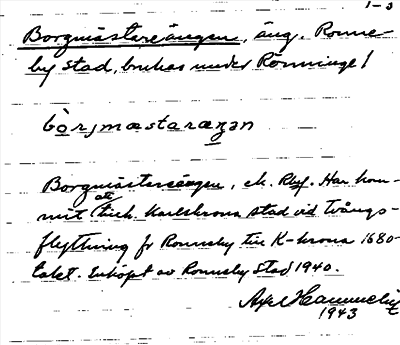 1-3
Borgmästareängen, äng. Ronne-
by stad, brukas under Rönninge 1
bòrjmæstaræŋan
Borgmästareängen, ek. Rbf. Har kom-
mit att tillh. Karlskrona stad vid tvångs-
flyttning fr Ronneby till K-krona 1680-
talet. Inköpt av Ronneby Stad 1940.
Axel
1943